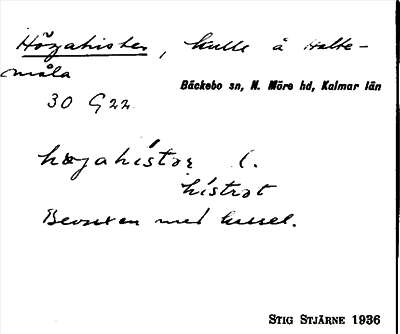 Högahister, kulle å Halte-
måla
Bäckebo sn, N. Möre hd, Kalmar län
30 G 22
høgahistər l.
histrət
Bevuxen med hassel.
STIG STJÄRNE 1936